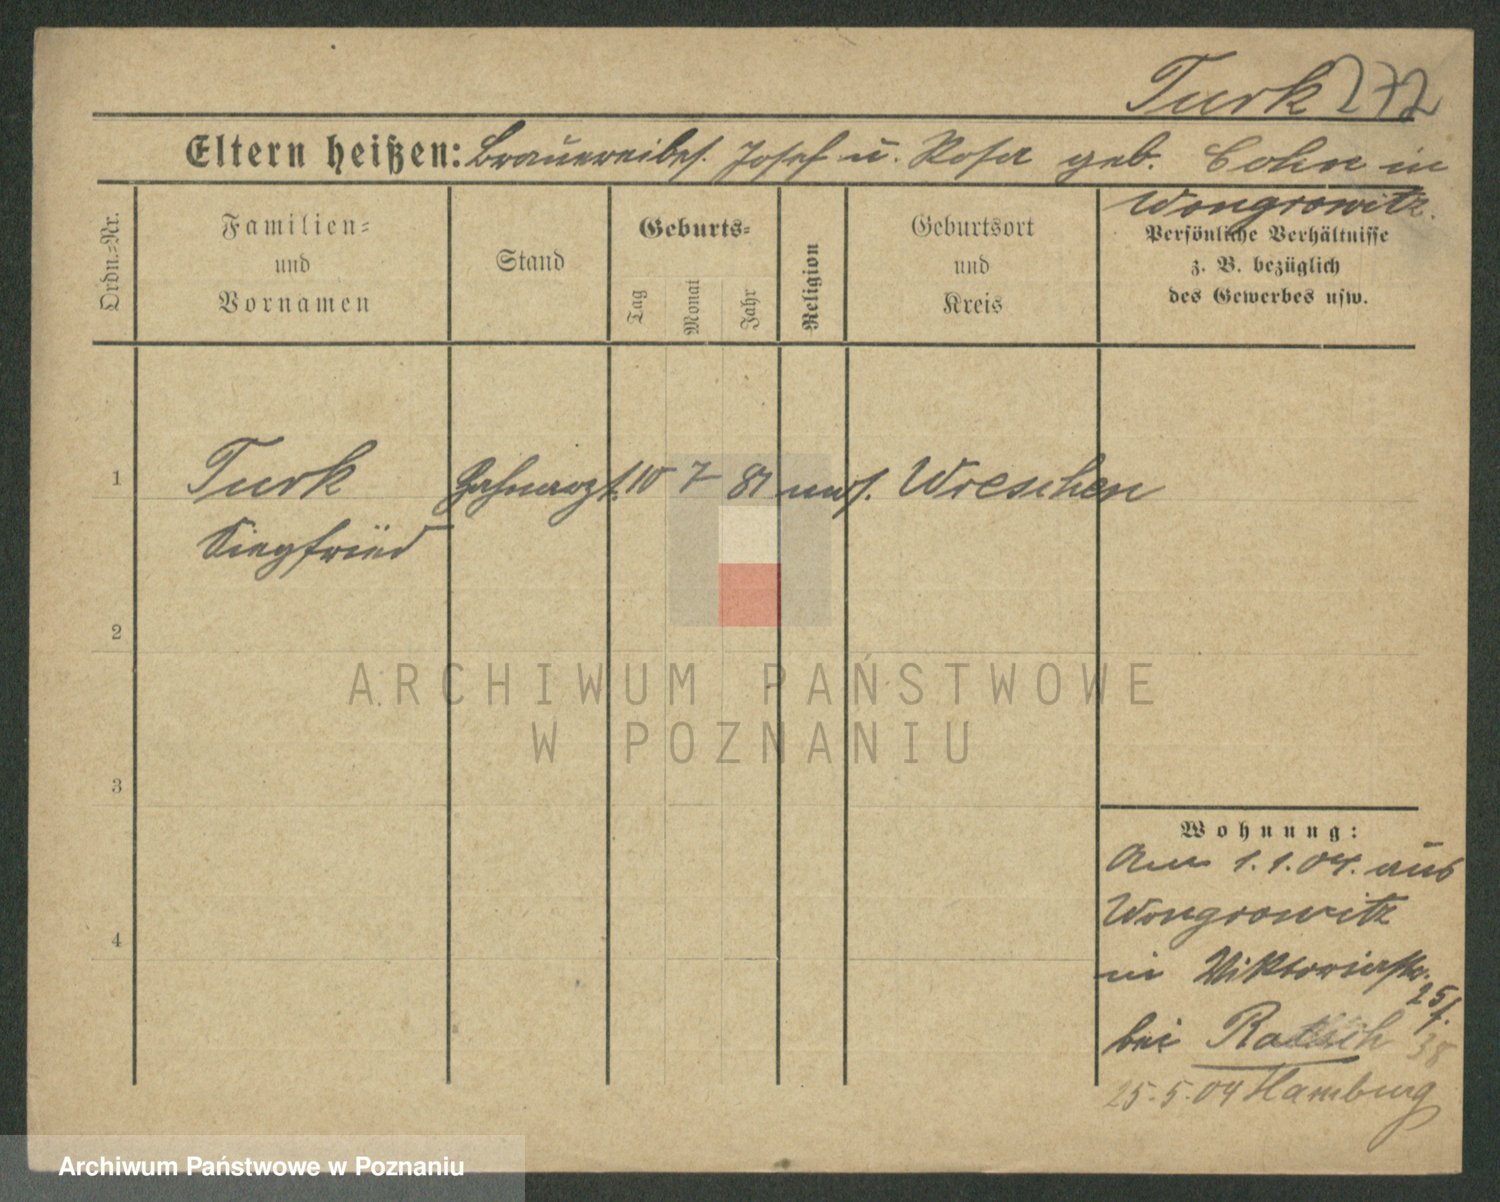 Turk 272
Eltern heißen: Brauereibes. Josef u. Rosa geb. Cohn in
Wongrowitz.
Ordn.-Nr.
Familien-
und
Vornamen
Stand
Geburts-
Tag
Monat
Jahr
Religion
Geburtsort
und
Kreis
Persönliche Verhältnisse
z. B. bezüglich
des Gewerbes usw.
1 Turk Zahnarzt 10 7 81 mos. Wreschen
Siegfried
2
3
4
ARCHIWUM PAŃSTWOWE
W POZNANIU
Wohnung:
Am 1.1.04. aus
Wongrowitz
in Viktoriastr.
25
bei Ratsch 38
25.5.04 Hamburg
Archiwum Państwowe w Poznaniu